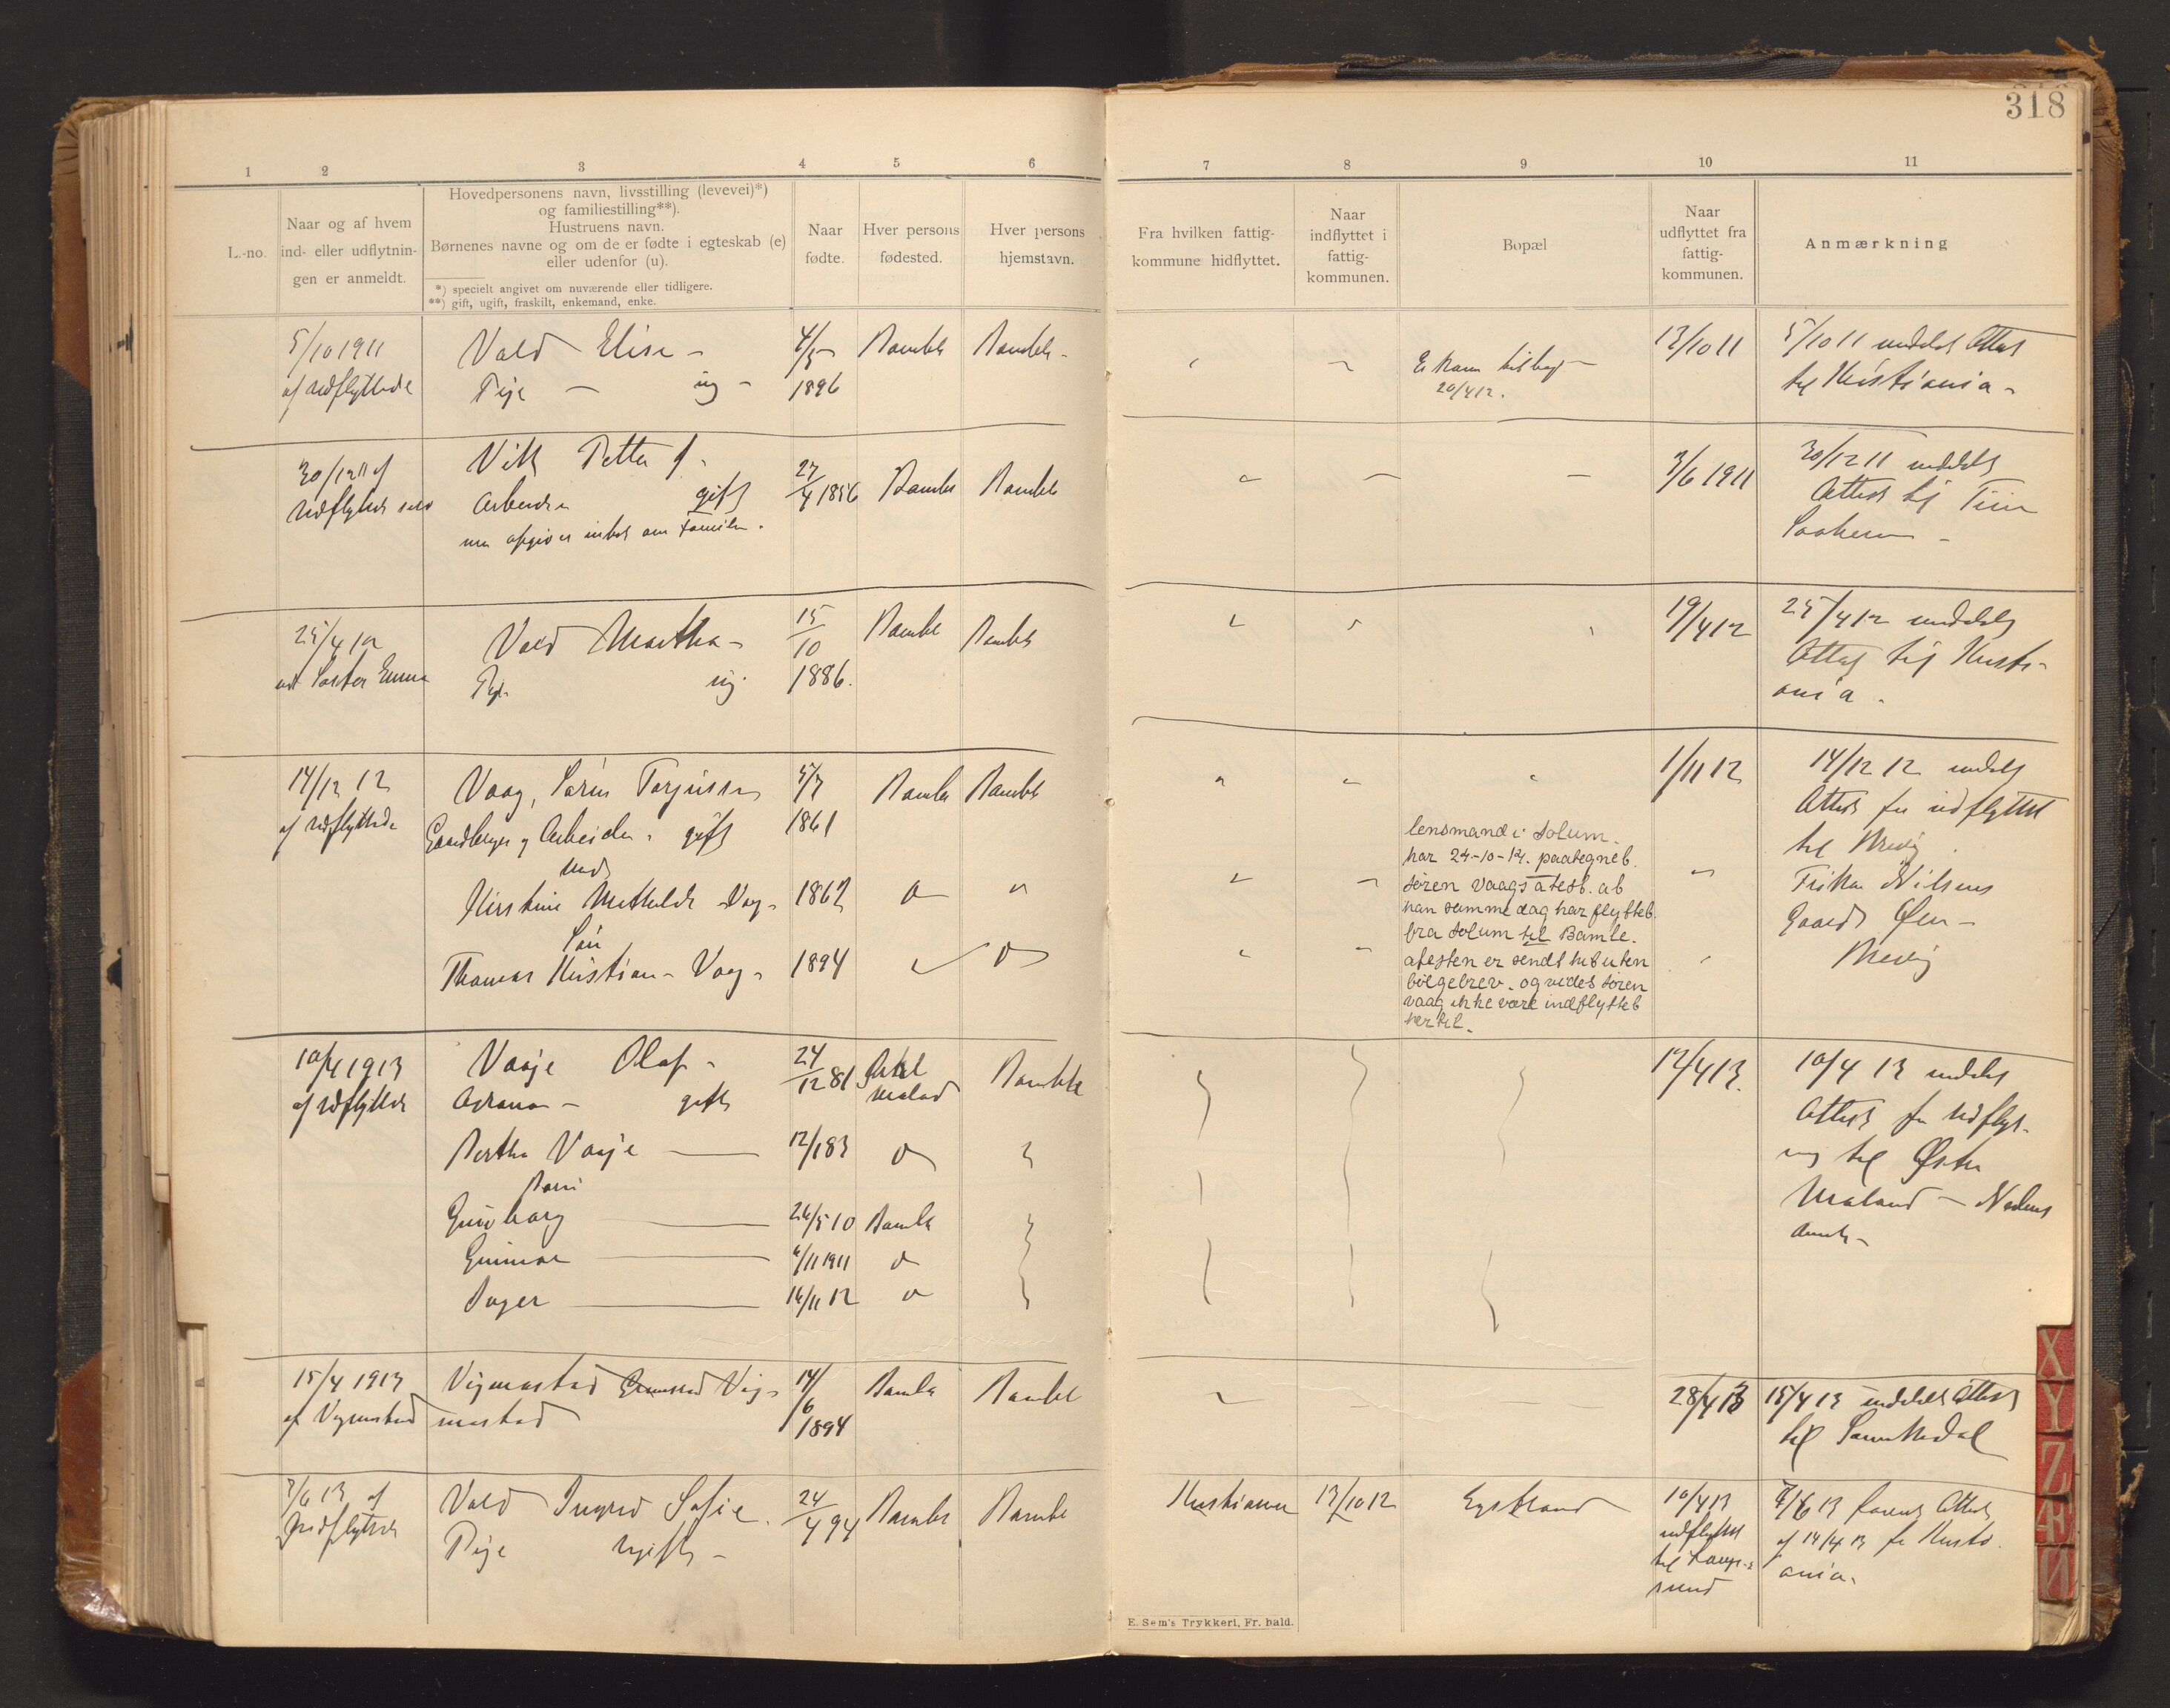 318
1 2 3 4 5 6 7 8 9 10 11
L.-no.
Naar og af hvem
ind- eller udflytnin-
gen er anmeldt.
Hovedpersonens navn, livsstilling (levevei)*)
og familiestilling**).
Hustruens navn.
Børnenes navne og om de er fødte i egteskab (e)
eller udenfor (u).
*) specielt angivet om nuværende eller tidligere.
**) gift, ugift, fraskilt, enkemand, enke.
Naar
fødte.
Hver persons
fødested.
Hver persons
hjemstavn.
Fra hvilken fattig-
kommune hidflyttet.
Naar
indflyttet i
fattig-
kommunen.
Bopæl
Naar
udflyttet fra
fattig-
kommunen.
Anmærkning
5/10 1911
af udflyttede
Vold Elise -
Pige - ug -
4/5
1896
Bamble
Bamble -
E kom tilbage
20/4 12.
13/10 11
5/10 11 meddelt Attest
til Kristiania -
30/12 11 af
udflyttede selv
Vik Petter J.
Arbeider gift
27/4 1856
Bamble
Bamble
3/6 1911
30/12 11 meddelt
Attest til Tinn
25/4 12
ved Søster Emma
Vold Martha -
Pige ug.
15/10
1886.
Bamble
Bamble
19/4 12
25/4 12 meddelt
Attest til Kristi-
ania.
14/12 12
af udflyttede
Vaag, Søren Torjussen
Gaardbruger og Arbeider. gift
med
Kirstine Mathilde Vaag -
Søn
Thomas Kristian - Vaag -
5/7
1861
1862
1894
Bamble
Bamble
lensmand i Solum.
har 24-10-14. paategnet.
Søren Vaags atest. at
han samme dag har flyttet.
fra Solum til Bamle.
atesten er sendt hit uten
følgebrev. og vides Søren
vaag ikke være indflyttet
hertil.
1/11 12
14/12 12 meddelt
Attest for udflyttet
til Brevig.
Nilsens
Gaard Øen -
Brevig
10/4 1913
af udflyttede
Vaaje Olaf -
gift
Bertha Vaaje
Barn
Gunborg
Gunnar
Roger
24/12 81
12/1 83
26/5 10
6/11 1911
16/11 12
Bamble
Bamble
12/4 13.
10/4 13 meddelt
Attest for udflyt-
ning til Østre
Moland - Nedenes
Amt -
15/4 1913
af Vigmostad
Vigmostad Vig-
mostad
14/6
1894
Bamble
Bamble
28/4 13
15/4 13 meddelt Attest
til Sannikedal
7/6 13 af
Indflyttede
Vold Ingrid Sofie.
Pige ugift -
24/4 94
Bamble
Bamble
Kristiania
13/10 12
Eystrand
10/4 13
udflyttet
til Lange-
sund
7/6 13 forevist Attest
af 14/4 13 fra Kristi-
ania.
E. Sem's Trykkeri, Fr. hald.
X
Y
Z
Æ
Ø